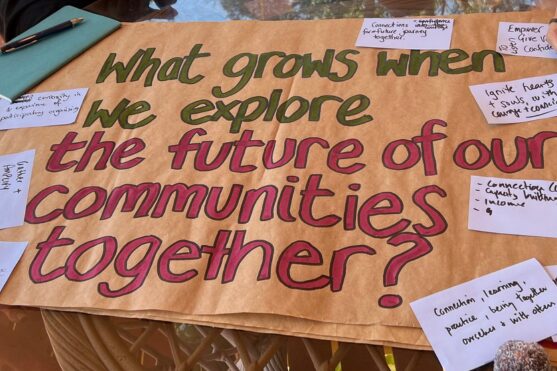 What grows when
we explore
the future of our
communities
together?
Connections
for future journey
together.
Empower
Give Vo
Confid
Ignite hearts
+ souls, with
courage +
curiosity in
+ expansive of
participatory organising
Gather +
- Connection
- capacity building
- Income
Connection, learning,
practice, being together
ourselves + with others